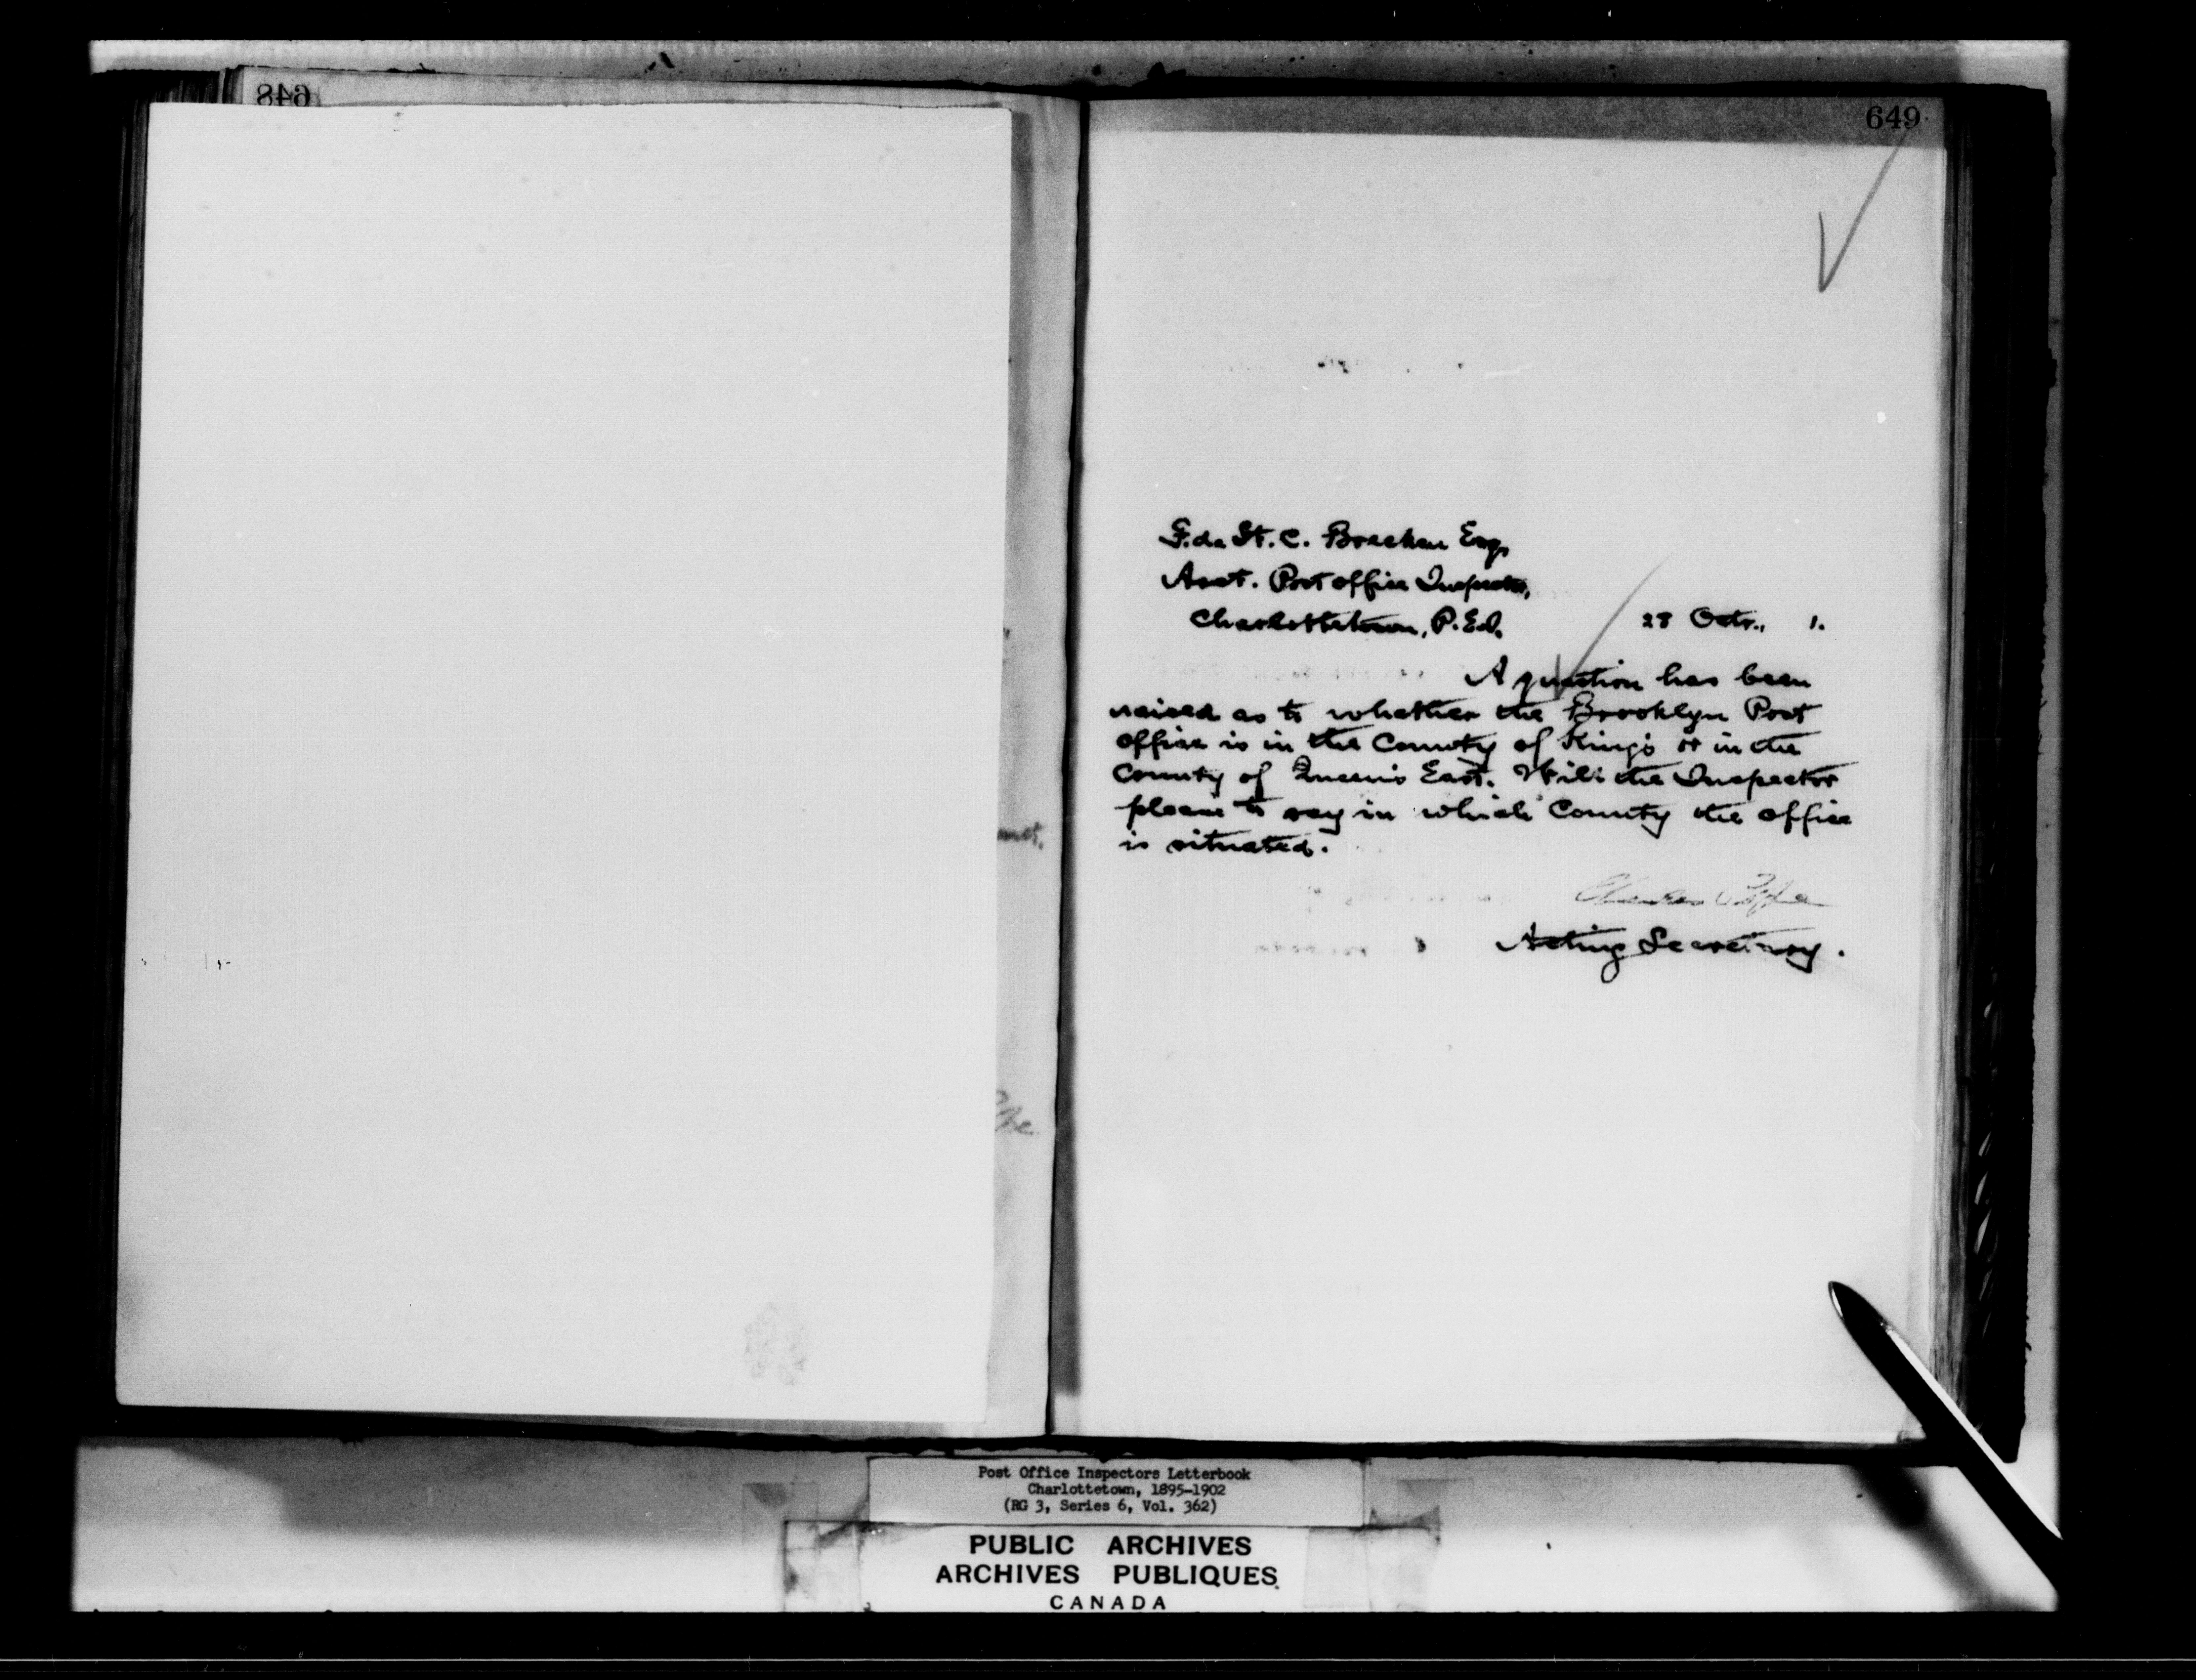 648
649
F. de St. C. Brecken Esq,
Asst. Post office Inspector,
Charlottetown, P.E.I.
28 Octr., 1.
A question has been
raised as to whether the Brooklyn Post
office is in the County of King's or in the
County of Queen's East. Will the Inspector
please to say in which County the office
is situated.
Acting Secretary.
Post Office Inspectors Letterbook
Charlottetown, 1895-1902
(RG 3, Series 6, Vol. 362)
PUBLIC ARCHIVES
ARCHIVES PUBLIQUES
CANADA